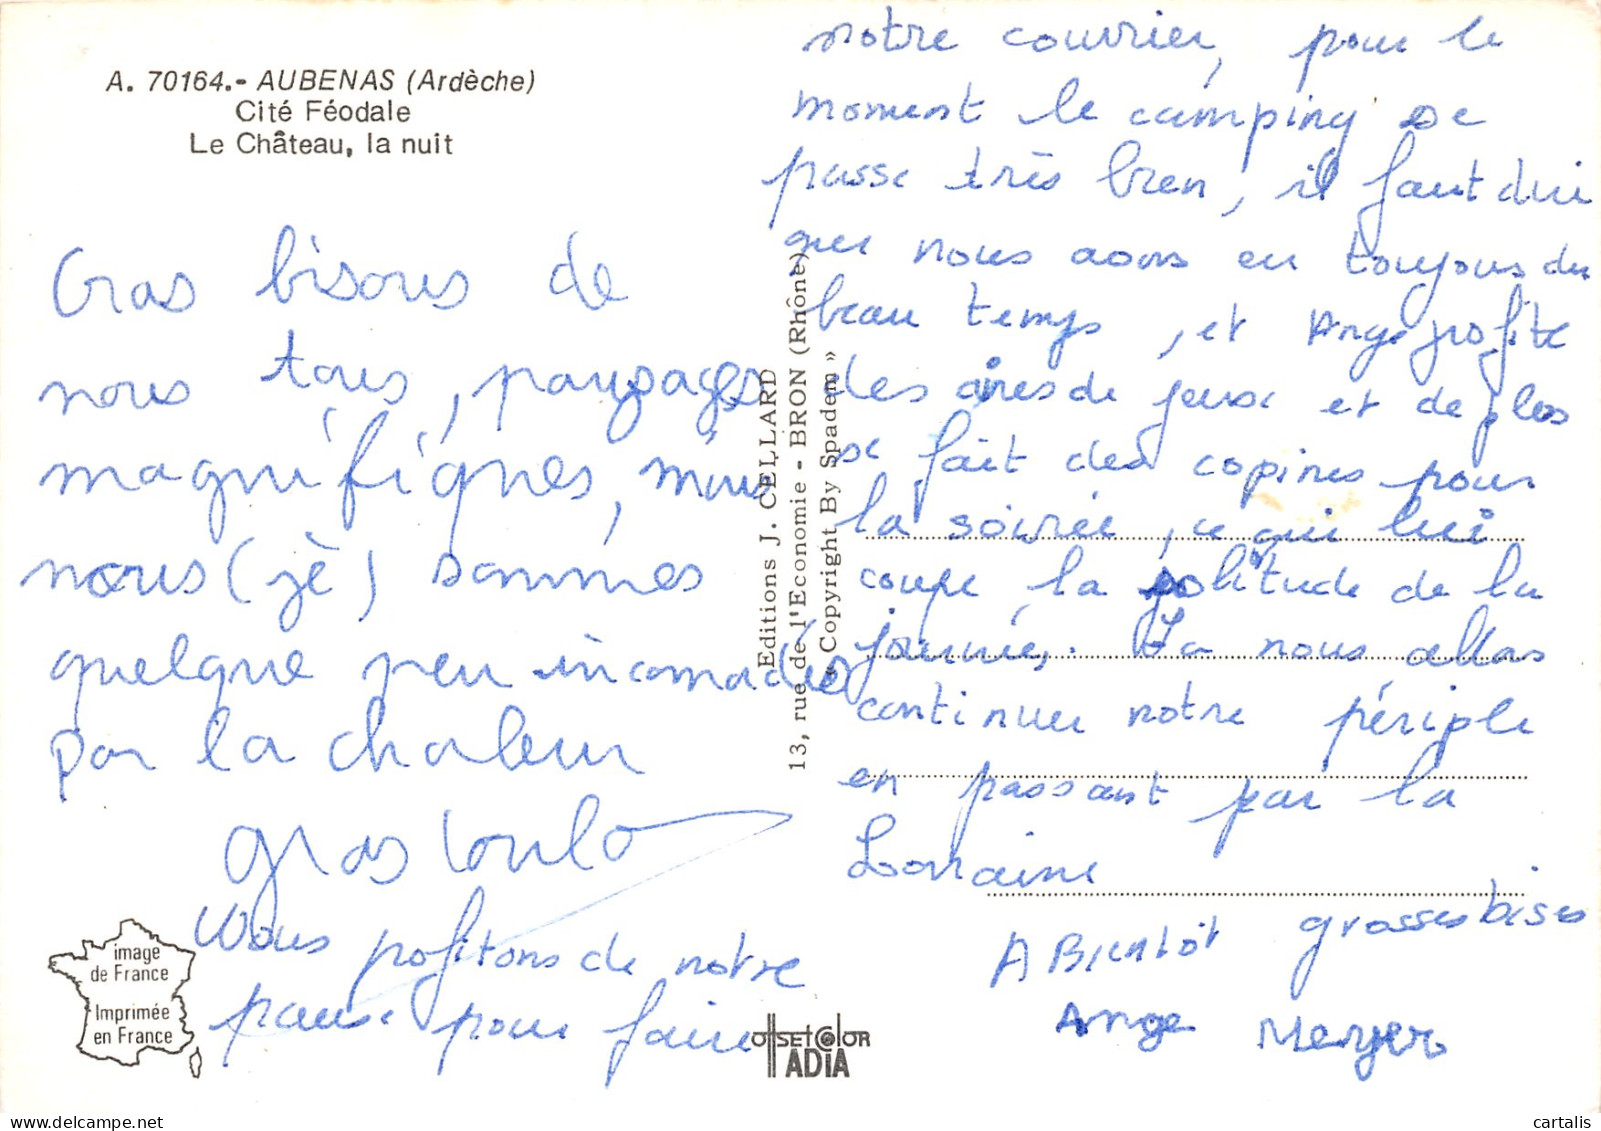 A. 70164.- AUBENAS (Ardèche)
Cité Féodale
Le Château, la nuit
Gras bisous de
nous tous, paysages
magnifiques, mais
nous (jè) sommes
quelque peu incomodés
par la chaleur
gras loulo
Nous profitons de notre
pause pour faire
notre courrier, pour le
moment le camping se
passe très bien, il faut dire
que nous avons eu toujours du
beau temps, et Ange profite
des aires de jeux et de plus
se fait des copines pour
la soirée, ce qui lui
coupe la solitude de la
journée. La nous allons
continuer notre périple
en passant par la
Lorraine
grosses bises
A Bientôt
Ange Meryer
Editions J. CELLARD
13, rue de l'Economie - BRON (Rhône)
« Copyright By Spadem »
image
de France
Imprimée
en France
OFFSET COLOR
ADIA
cartalis